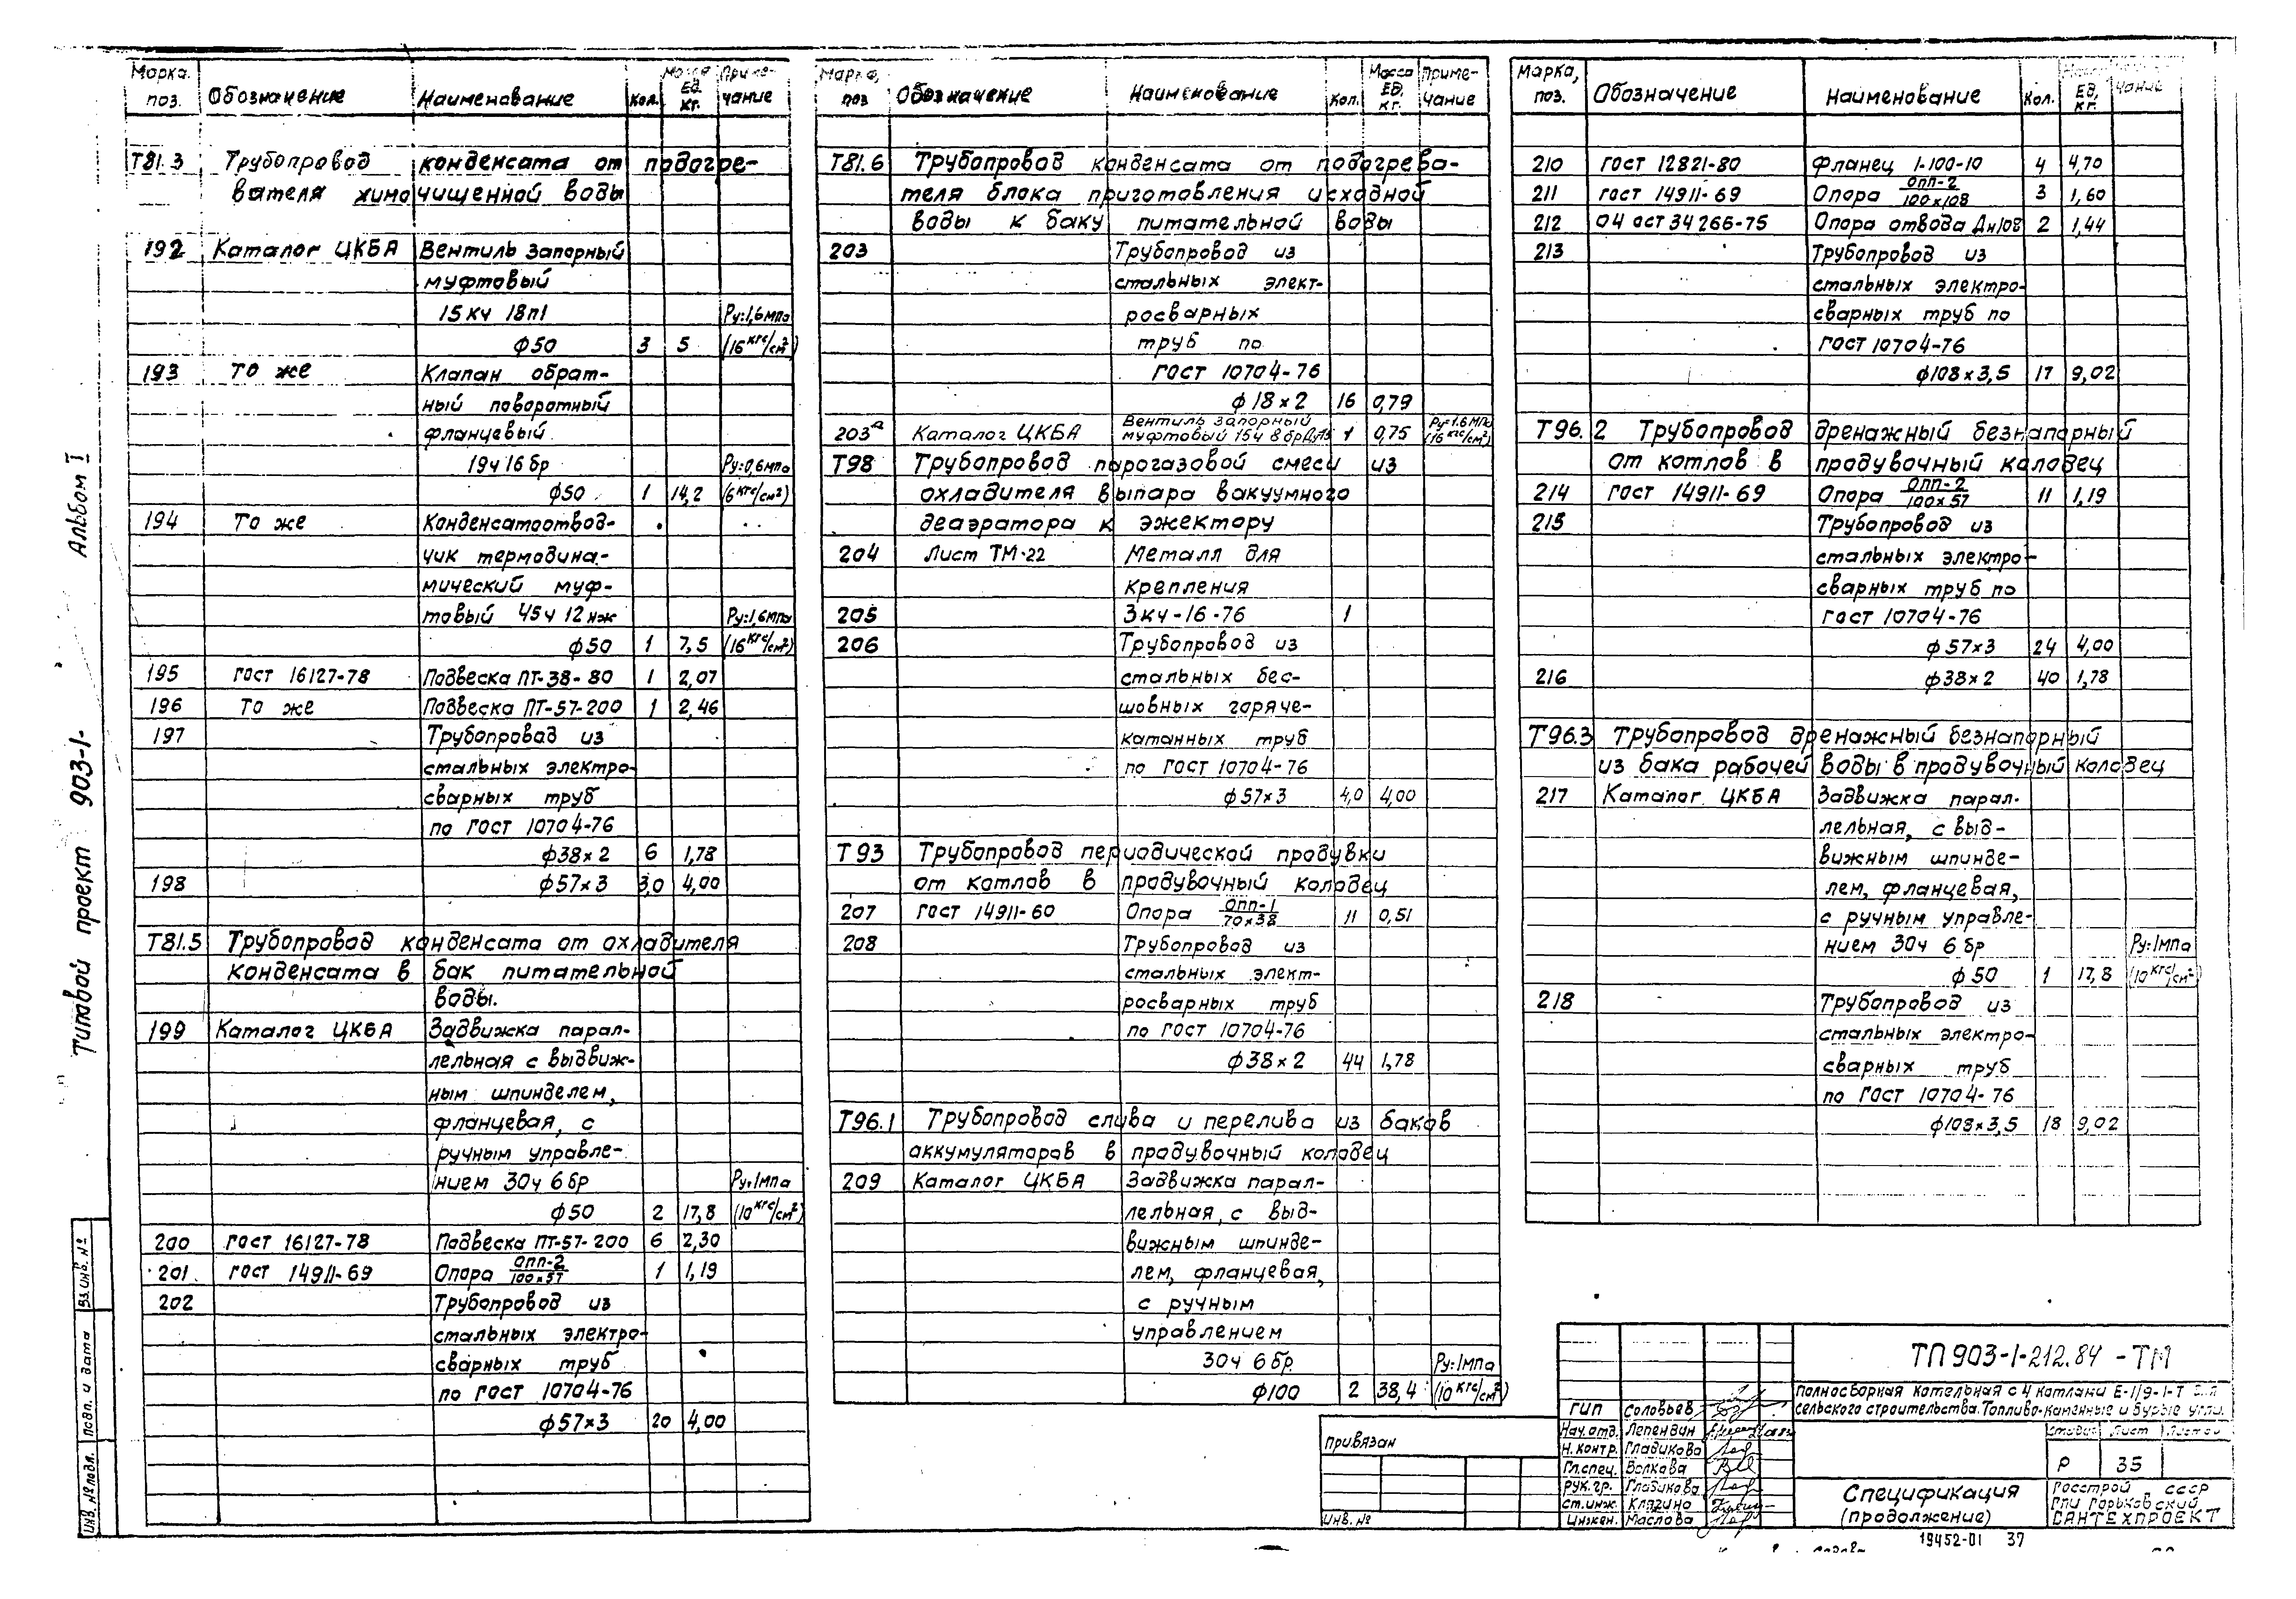 Альбом I
Типовой проект 903-1-
Вз. инв. №
подп. и дата
инв. № подл.
Марка. поз. Обозначение Наименование кол. Масса ЕД. кг. Приме- чание
Т81.3 Трубопровод конденсата от подогре-
вателя химочищенной воды
192 Каталог ЦКБА Вентиль запорный
муфтовый
15 кч 18п1 Ру=1,6мпа
ф50 3 5 (16 кгс/см²)
193 то же Клапан обрат-
ный поворотный
фланцевый
19ч 16 бр Ру=0,6мпа
ф50 1 14,2 (6 кгс/см²)
194 то же Конденсатоотвод-
чик термодина-
мический муф-
товый 45ч 12 нж Ру=1,6мпа
ф50 1 7,5 (16 кгс/см²)
195 гост 16127-78 Подвеска ПТ-38-80 1 2,07
196 то же Подвеска ПТ-57-200 1 2,46
197 Трубопровод из
стальных электро-
сварных труб
по гост 10704-76
ф38×2 6 1,78
198 ф57×3 3,0 4,00
Т81.5 Трубопровод конденсата от охладителя
конденсата в бак питательной
воды.
199 Каталог ЦКБА Задвижка парал-
лельная с выдвиж-
ным шпинделем,
фланцевая, с
ручным управле-
нием 30ч 6бр Ру=1мпа
ф50 2 17,8 (10 кгс/см²)
200 гост 16127-78 Подвеска ПТ-57-200 6 2,30
201 гост 14911-69 Опора ОПП-2/100×57 1 1,19
202 Трубопровод из
стальных электро-
сварных труб
по гост 10704-76
ф57×3 20 4,00
Марка, поз Обозначение Наименование Кол. Масса ЕД, кг. Приме- чание
Т81.6 Трубопровод конденсата от подогрева-
теля блока приготовления исходной
воды к баку питательной воды
203 Трубопровод из
стальных элект-
росварных
труб по
гост 10704-76
ф18×2 16 0,79
203а Каталог ЦКБА Вентиль запорный муфтовый 15ч 8бр 1 0,75 Ру=1.6мпа (16 кгс/см²)
Т98 Трубопровод парогазовой смеси из
охладителя выпара вакуумного
деаэратора к эжектору
204 Лист ТМ-22 Металл для
крепления
205 3кч-16-76 1
206 Трубопровод из
стальных бес-
шовных горяче-
катанных труб
по гост 10704-76
ф57×3 4,0 4,00
Т93 Трубопровод периодической продувки
от котлов в продувочный колодец
207 гост 14911-60 Опора ОПП-1/70×38 11 0,51
208 Трубопровод из
стальных элект-
росварных труб
по гост 10704-76
ф38×2 44 1,78
Т96.1 Трубопровод слива и перелива из баков
аккумуляторов в продувочный колодец
209 Каталог ЦКБА Задвижка парал-
лельная, с выд-
вижным шпинде-
лем, фланцевая,
с ручным
управлением
30ч 6бр Ру=1мпа
ф100 2 38,4 (10 кгс/см²)
Марка, поз. Обозначение Наименование Кол. ЕД, кг. чание
210 гост 12821-80 Фланец 1-100-10 4 4,70
211 гост 14911-69 Опора ОПП-2/100×108 3 1,60
212 04 ост 34 266-75 Опора отвода Дн108 2 1,44
213 Трубопровод из
стальных электро-
сварных труб по
гост 10704-76
ф108×3,5 17 9,02
Т96.2 Трубопровод дренажный безнапорный
от котлов в продувочный колодец
214 гост 14911-69 Опора ОПП-2/100×57 11 1,19
215 Трубопровод из
стальных электро-
сварных труб по
гост 10704-76
ф57×3 24 4,00
216 ф38×2 40 1,78
Т96.3 Трубопровод дренажный безнапорный
из бака рабочей воды в продувочный колодец
217 Каталог ЦКБА Задвижка парал-
лельная, с выд-
вижным шпинде-
лем, фланцевая,
с ручным управле-
нием 30ч 6бр Ру=1мпа
ф50 1 17,8 (10 кгс/см²)
218 Трубопровод из
стальных электро-
сварных труб
по гост 10704-76
ф108×3,5 18 9,02
привязан
инв. №
ТП 903-1-212.84 -ТМ
Полносборная котельная с 4 котлами Е-1/9-1-Т для
сельского строительства. Топливо-каменные и бурые угли.
ГИП Соловьев
Нач. отд. Лепендин
Н. контр. Гладикова
Гл. спец. Волкова
рук. гр. Гладикова
ст. инж. Клязино
инжен. Маслова
Стадия Лист Листов
Р 35
Спецификация
(продолжение)
Госстрой СССР
ГПИ Горьковский
САНТЕХПРОЕКТ
19452-01 37